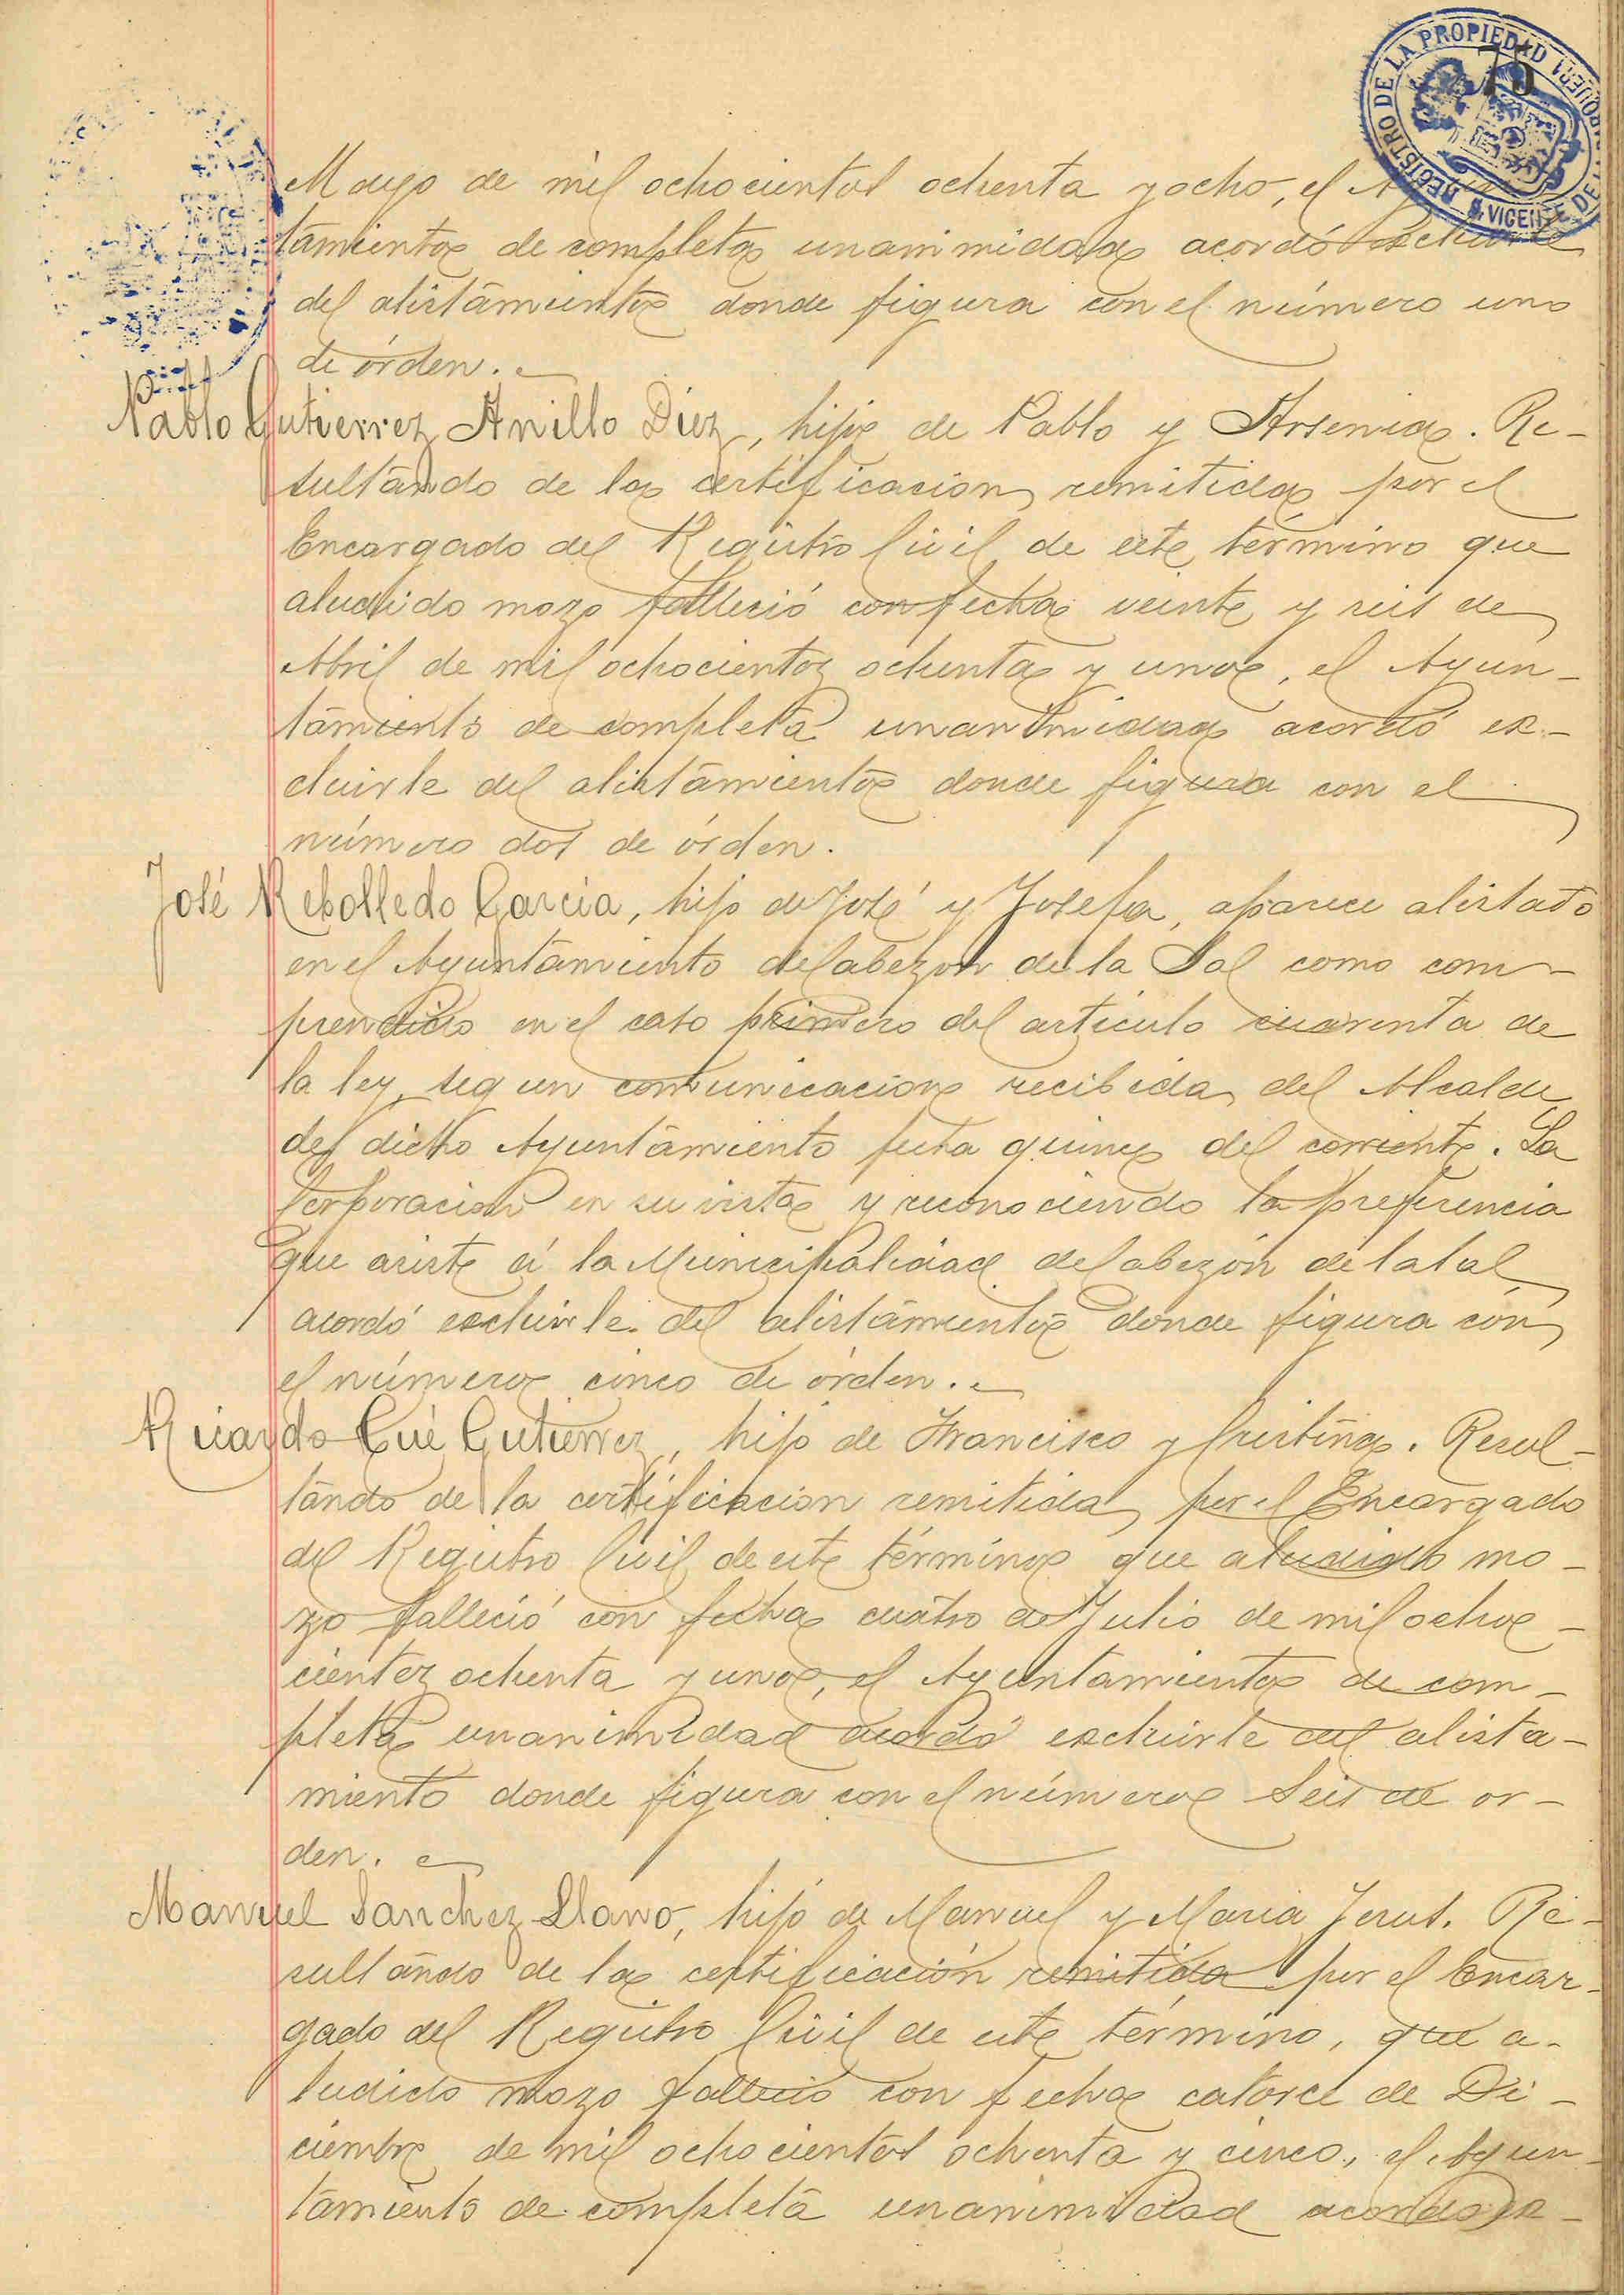 75
REGISTRO DE LA PROPIEDAD
S. VICENTE DE
Mayo de mil ochocientos ochenta y ocho, el
tamiento de completa unanimidad acordó excluirle
del alistamiento donde figura con el número uno
de órden.
Pablo Gutierrez Anillo Diez, hijo de Pablo y Arsenia. Re-
sultando de la certificacion remitida por el
Encargado del Registro Civil de este término que
aludido mozo falleció con fecha veinte y seis de
Abril de mil ochocientoz ochenta y uno, el Ayun-
tamiento de completa unanimidad acordó ex-
cluirle del alistamiento donde figura con el
número dos de órden.
José Rebolledo Garcia, hijo de José y Josefa, aparece alistado
en el Ayuntamiento de Cabezon de la Sal como com-
prendido en el caso primero del artículo cuarenta de
la ley, segun comunicacion recibida del Alcalde
del dicho Ayuntamiento fecha quince del corriente. La
Corporacion en su vista y reconociendo la preferencia
que asiste á la Municipalidad de Cabezón de la Sal
acordó excluirle del alistamiento donde figura con
el número cinco de órden.
Ricardo Cué Gutierrez, hijo de Francisco y Cristina. Resul-
tando de la certificacion remitida por el Encargado
del Registro Civil de este término que aludido mo-
zo falleció con fecha cuatro de Julio de mil ocho-
cientoz ochenta y uno, el Ayuntamiento de com-
pleta unanimidad acordó excluirle del alista-
miento donde figura con el número seis de or-
den.
Manuel Sanchez Llano, hijo de Manuel y Maria Jesus. Re-
sultando de la certificación remitida por el Encar-
gado del Registro Civil de este término, que a-
ludido mozo falleció con fecha catorce de Di-
ciembre de mil ochocientos ochenta y cinco, el Ayun-
tamiento de completa unanimidad acordó ex-